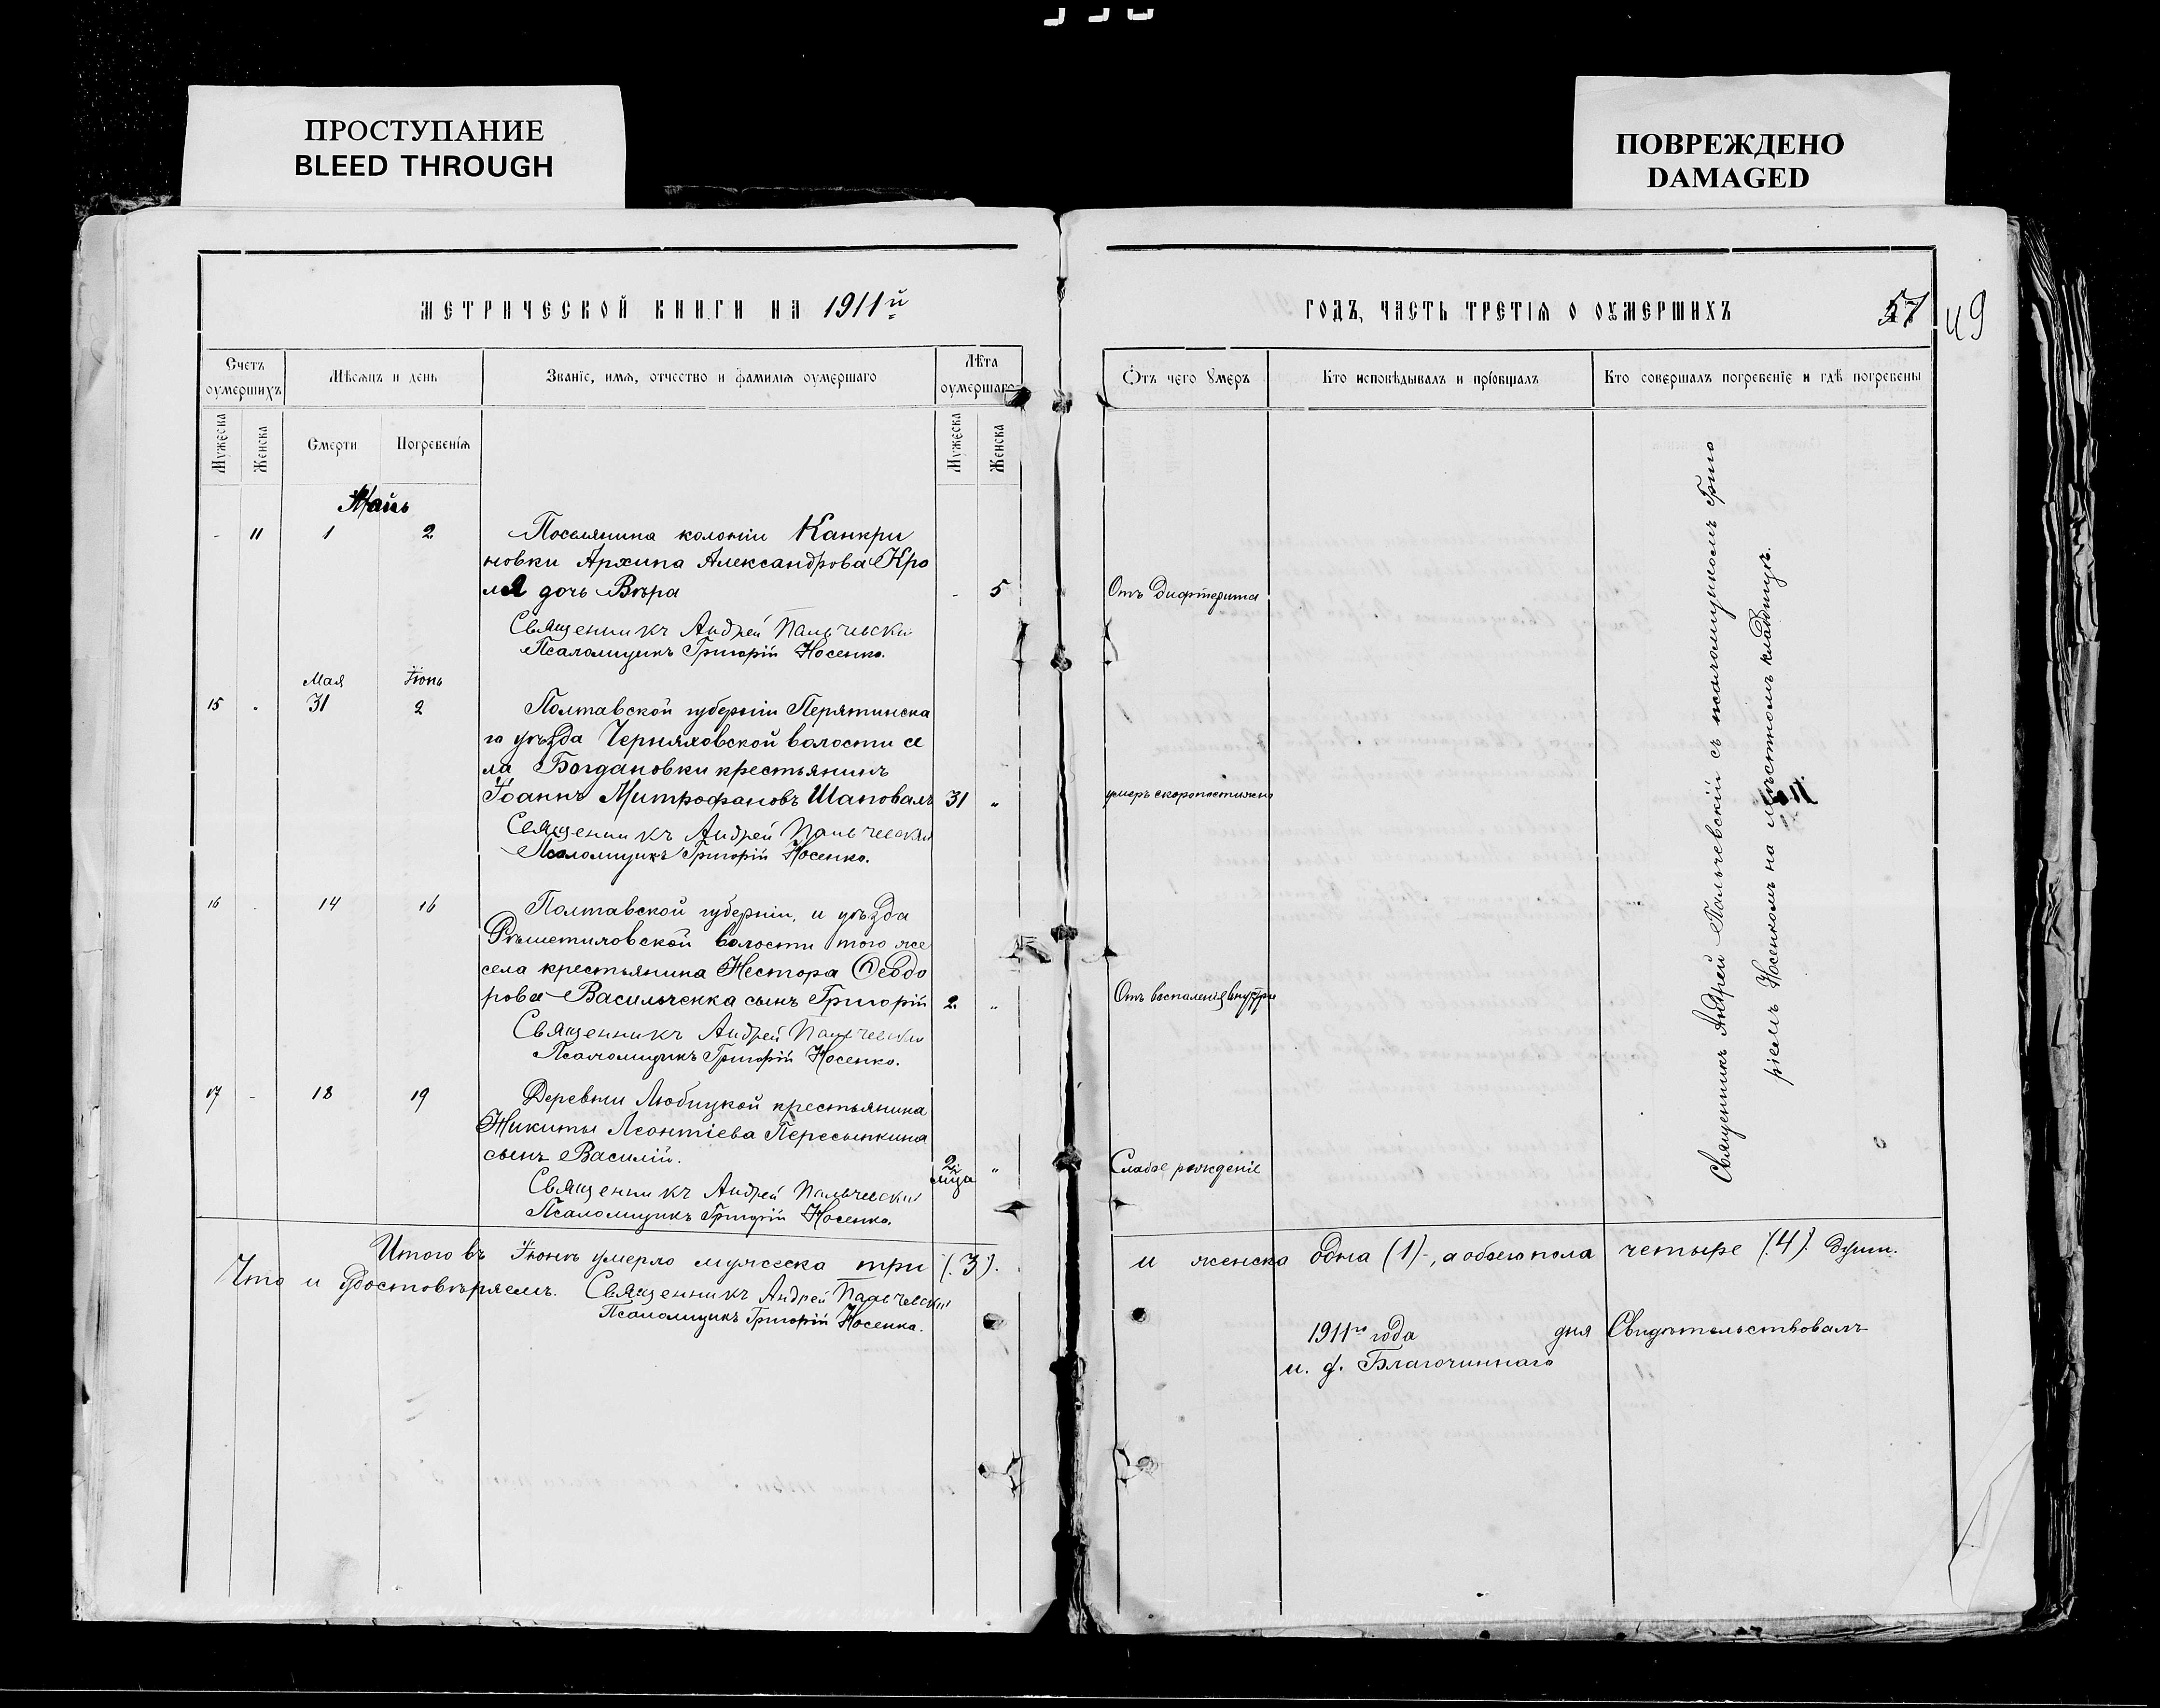 ПРОСТУПАНИЕ
BLEED THROUGH
ПОВРЕЖДЕНО
DAMAGED
МЕТРИЧЕСКОЙ КНИГИ НА 1911й
Счетъ оумершихъ
Мѣсяцъ и день
Званіе, имя, отчество и фамилія оумершаго
Лѣта оумершаго
Мужеска
Женска
Смерти
Погребенія
Мужеска
Женска
- 11 1 2 Поселянина колоніи Канкри
новки Архипа Александрова Кро
ля дочь Вѣра - 5
Священникъ Андрей Пальчевскій
Псаломщикъ Григорій Носенко.
Мая Іюнь
15 31 2 Полтавской губерніи Перятинска
го уѣзда Черняховской волости се
ла Богдановки крестьянинъ
Іоаннъ Митрофановъ Шаповалъ 31 „
Священникъ Андрей Пальчевскій
Псаломщикъ Григорій Носенко.
16 14 16 Полтавской губерніи, и уѣзда
Рѣшетиловской волости того же
села крестьянина Нестора Ѳеодо
рова Васильченка сынъ Григорій 2. „
Священникъ Андрей Пальчевскій
Псаломщикъ Григорій Носенко.
17 - 18 19 Деревни Любицкой крестьянина
Никиты Леонтіева Пересыпкина
сынъ Василій. 2 м̃ца „
Священникъ Андрей Пальчевскій
Псаломщикъ Григорій Носенко.
Итого въ Іюнѣ умерло мужеска три (3).
Что и удостовѣряемъ. Священникъ Андрей Пальчевскій
Псаломщикъ Григорій Носенко.
ГОДЪ, ЧАСТЬ ТРЕТІЯ О ОУМЕРШИХЪ
57
49
Ѿтъ чего умеръ
Кто исповѣдывалъ и пріобщалъ
Кто совершалъ погребеніе и гдѣ погребены
Отъ дифтерита
умеръ скоропостижно
Отъ воспаленія внутри
Слабое рожденіе
Священникъ Андрей Пальчевскій съ псаломщикомъ Григо
ріемъ Носенкомъ на мѣстномъ кладбищѣ.
и женска одна (1)-, а обоего пола четыре (4). душ.
1911го года дня Свидѣтельствовалъ
и. д. Благочиннаго